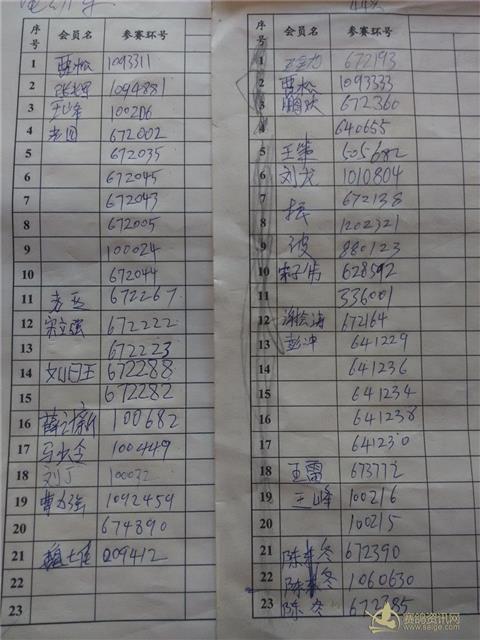 序号 会员名 参赛环号
1 贾松 1093311
2 1094881
3 王峰 100206
4 672002
5 672035
6 672045
7 672043
8 672005
9 100024
10 672044
11 672267
12 宋立强 672222
13 672223
14 刘日王 672288
15 672282
16 100682
17 100449
18 刘丁
19 曹力强 1092459
20 674890
21 209412
22
23
序号 会员名 参赛环号
1 672193
2 贾松 1093333
3 672360
4 640655
5 王策 505682
6 刘龙 1010804
7 振 672138
8 1202321
9 波 880123
10 628592
11 336001
12 672164
13 彭冲 641229
14 641236
15 641234
16 641238
17 641230
18 王雷
19 王峰 100216
20 100215
21 陈冬 672390
22 陈冬 1060630
23 陈冬 672385
赛鸽资讯网
www.saige.com